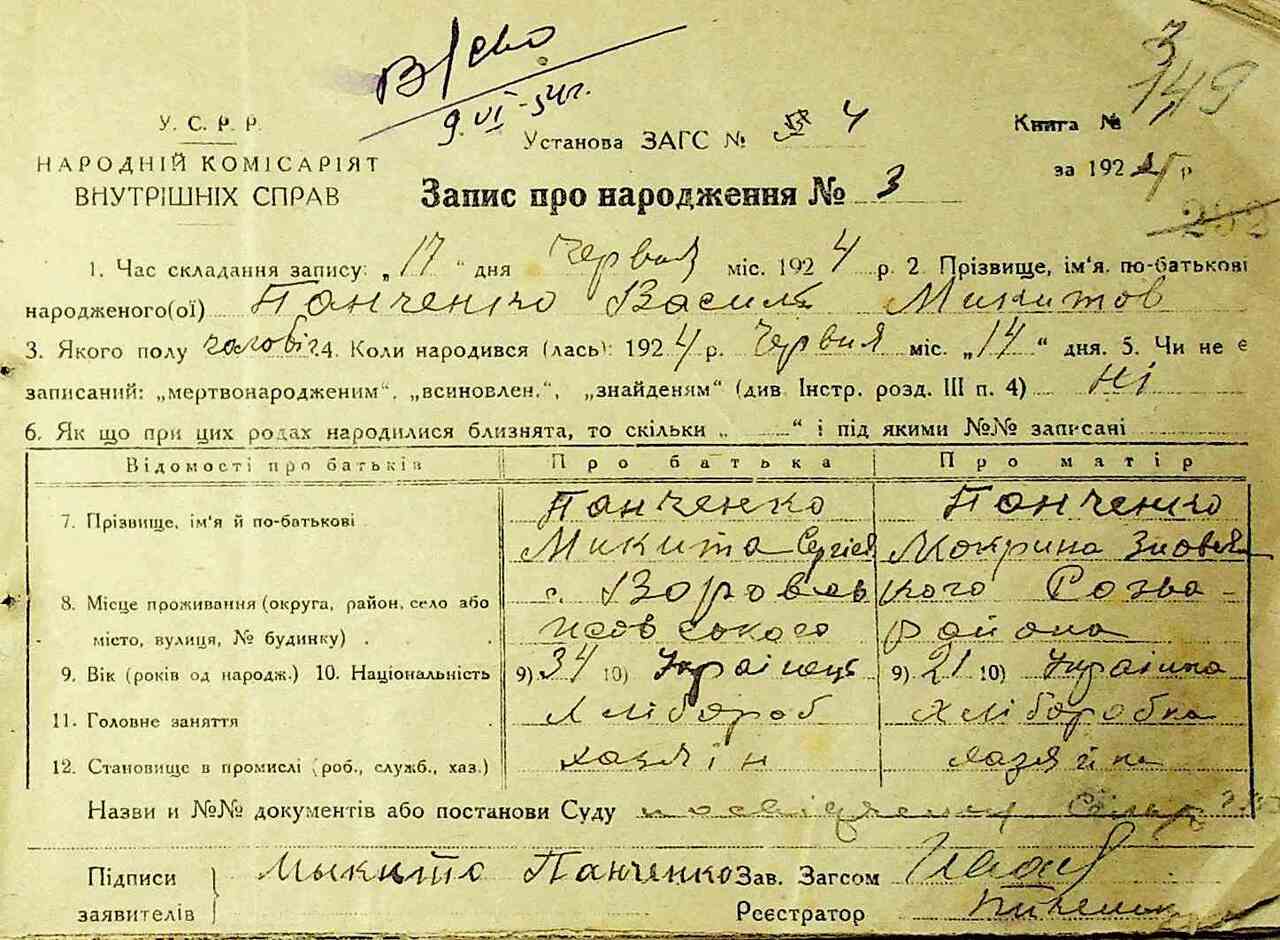 9. VI - 54 г.
3
149
У. С. Р. Р.
НАРОДНІЙ КОМІСАРІЯТ
ВНУТРІШНІХ СПРАВ
Установа ЗАГС № 4
Книга №
за 192 р
Запис про народження № 3
252
1. Час складання запису: „17" дня Червня міс. 1924 р. 2. Прізвище, ім'я, по-батькові
народженого(ої) Панченко Василь Микитов
3. Якого полу чоловіч. 4. Коли народився (лась): 1924 р. Червня міс. „14" дня. 5. Чи не є
записаний: „мертвонародженим", „всиновлен.", „знайденям" (див. Інстр. розд. III п. 4) Ні
6. Як що при цих родах народилися близнята, то скільки „ " і під якими №№ записані
Відомості про батьків Про батька Про матір
7. Прізвище, ім'я й по-батькові Панченко Панченко
Микита Сергієв Мокрина
8. Місце проживання (округа, район, село або с. кого Розва-
місто, вулиця, № будинку) жовського района
9. Вік (років од народж.) 10. Національність 9) 34 10) Українець 9) 21 10) Українка
11. Головне заняття Хлібороб Хліборобка
12. Становище в промислі (роб., служб., хаз.) хазяїн хазяйка
Назви и №№ документів або постанови Суду посвідчення
Підписи Мыкыта Панченко Зав. Загсом
заявителів Реєстратор